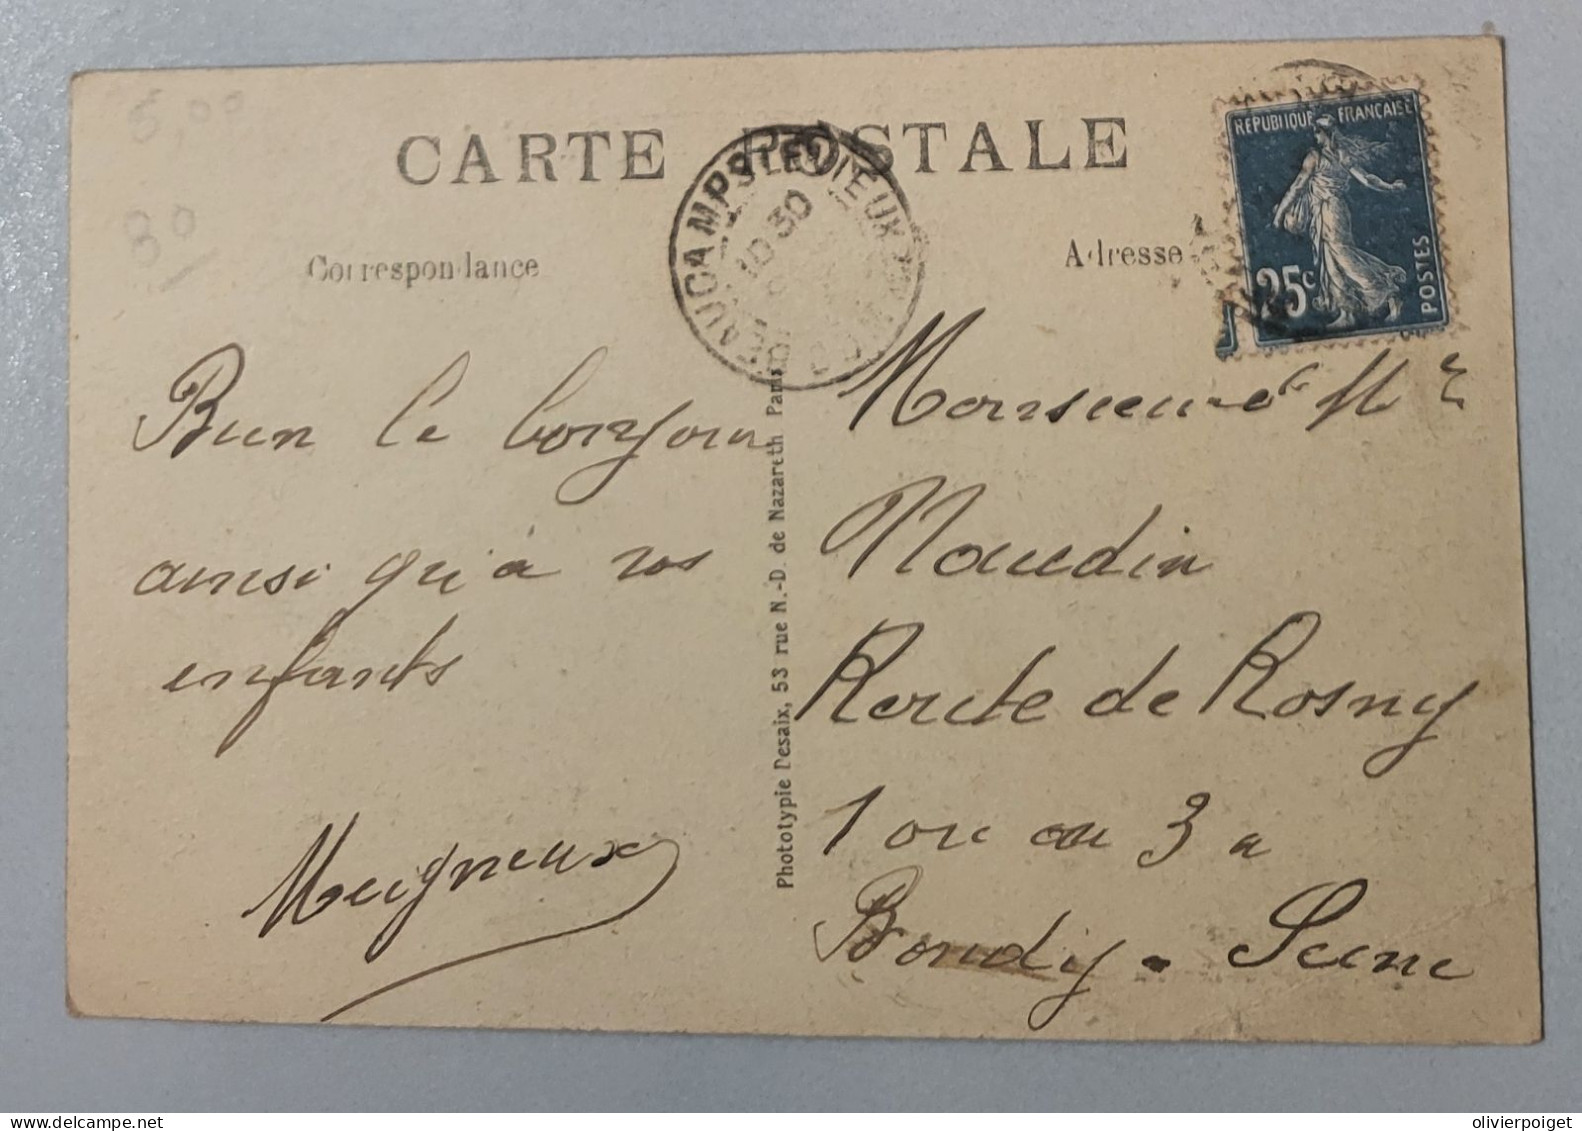 5,00
CARTE POSTALE
30
Correspondance
Adresse
BEAUCAMPS LE VIEUX
10 30
SOMME
REPUBLIQUE FRANÇAISE
25c
POSTES
Bien le bonjour
ainsi qu'à vos
enfants
Meigneux
Phototypie Desaix, 53 rue N.-D. de Nazareth Paris
Monsieur et Mme
Naudin
Route de Rosny
1 ou au 3 a
Bondy - Seine
olivierpoiget